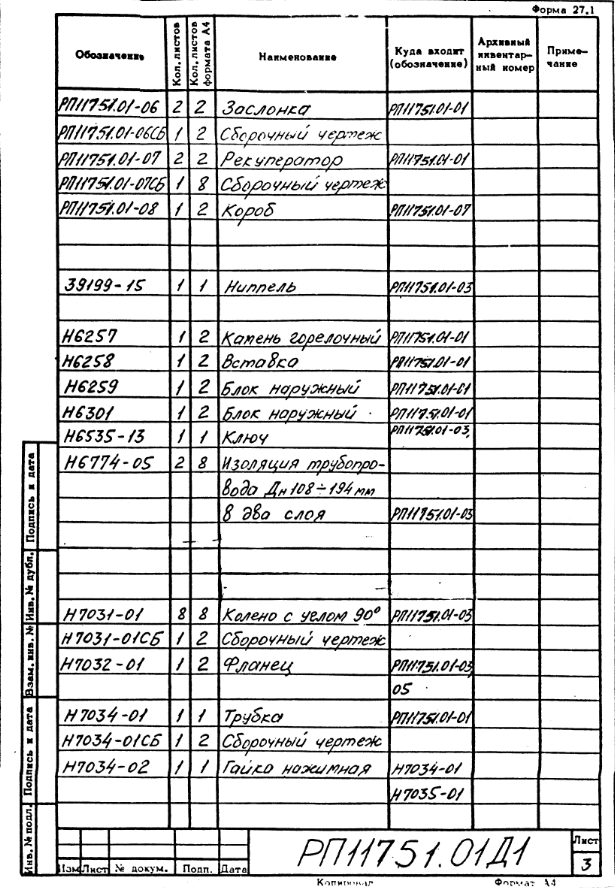 Форма 27.1
Обозначение Кол. листов Кол. листов формата А4 Наименование Куда входит (обозначение) Архивный инвентарный номер Примечание
РП11751.01-06 2 2 Заслонка РП11751.01-01
РП11751.01-06СБ 1 2 Сборочный чертеж
РП11751.01-07 2 2 Рекуператор РП11751.01-01
РП11751.01-07СБ 1 8 Сборочный чертеж
РП11751.01-08 1 2 Короб РП11751.01-07
39199-15 1 1 Ниппель РП11751.01-03
Н6257 1 2 Камень горелочный РП11751.01-01
Н6258 1 2 Вставка РП11751.01-01
Н6259 1 2 Блок наружный РП11751.01-01
Н6301 1 2 Блок наружный РП11751.01-01
Н6535-13 1 1 Ключ РП11751.01-03,
Н6774-05 2 8 Изоляция трубопро-
вода Дн 108÷194 мм
в два слоя РП11751.01-03
Н7031-01 8 8 Колено с углом 90° РП11751.01-03
Н7031-01СБ 1 2 Сборочный чертеж
Н7032-01 1 2 Фланец РП11751.01-03
05
Н7034-01 1 1 Трубка РП11751.01-01
Н7034-01СБ 1 2 Сборочный чертеж
Н7034-02 1 1 Гайка нажимная Н7034-01
Н7035-01
Инв. № подл. Подпись и дата Взам. инв. № Инв. № дубл. Подпись и дата
Изм Лист № докум. Подп. Дата
РП11751.01Д1
Лист
3
Копировал Формат А4